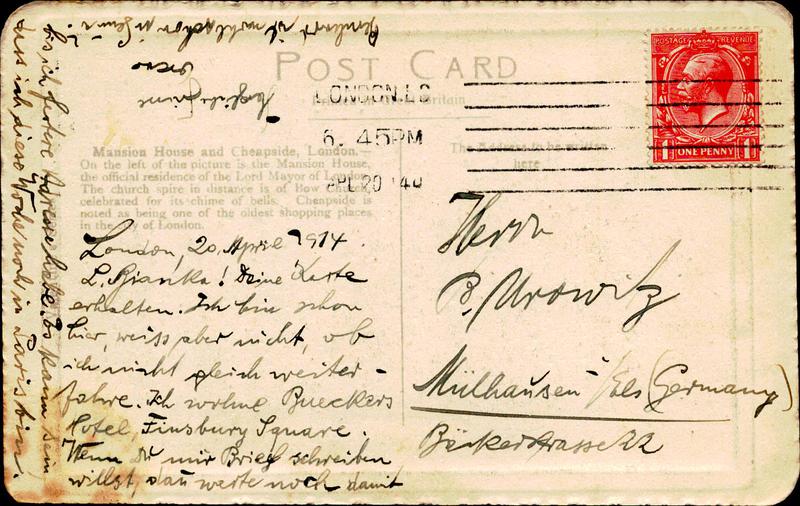 POST CARD
POSTAGE REVENUE
ONE PENNY
LONDON. E.C
6. 45PM
APL 20 14
The Address to be written
here
Mansion House and Cheapside, London.—
On the left of the picture is the Mansion House,
the official residence of the Lord Mayor of London.
The church spire in distance is of Bow Church
celebrated for its chime of bells. Cheapside is
noted as being one of the oldest shopping places
in the City of London.
London, 20. April 1914.
L. Bianka! Deine Karte
erhalten. Ich bin schon
hier, weiss aber nicht, ob
ich nicht gleich weiter-
fahre. Ich wohne Bueckers
Hotel, Finsbury Square.
Wenn Du mir Brief schreiben
willst, dan warte noch damit
bis ich fixere Adresse habe. Es kann sein
dass ich diese Woche noch in Paris bin.
Bernhart ist wohl schon in
Herrn
B. Urowitz
Mülhausen /Els (Germany)
Bäckerstrasse 22